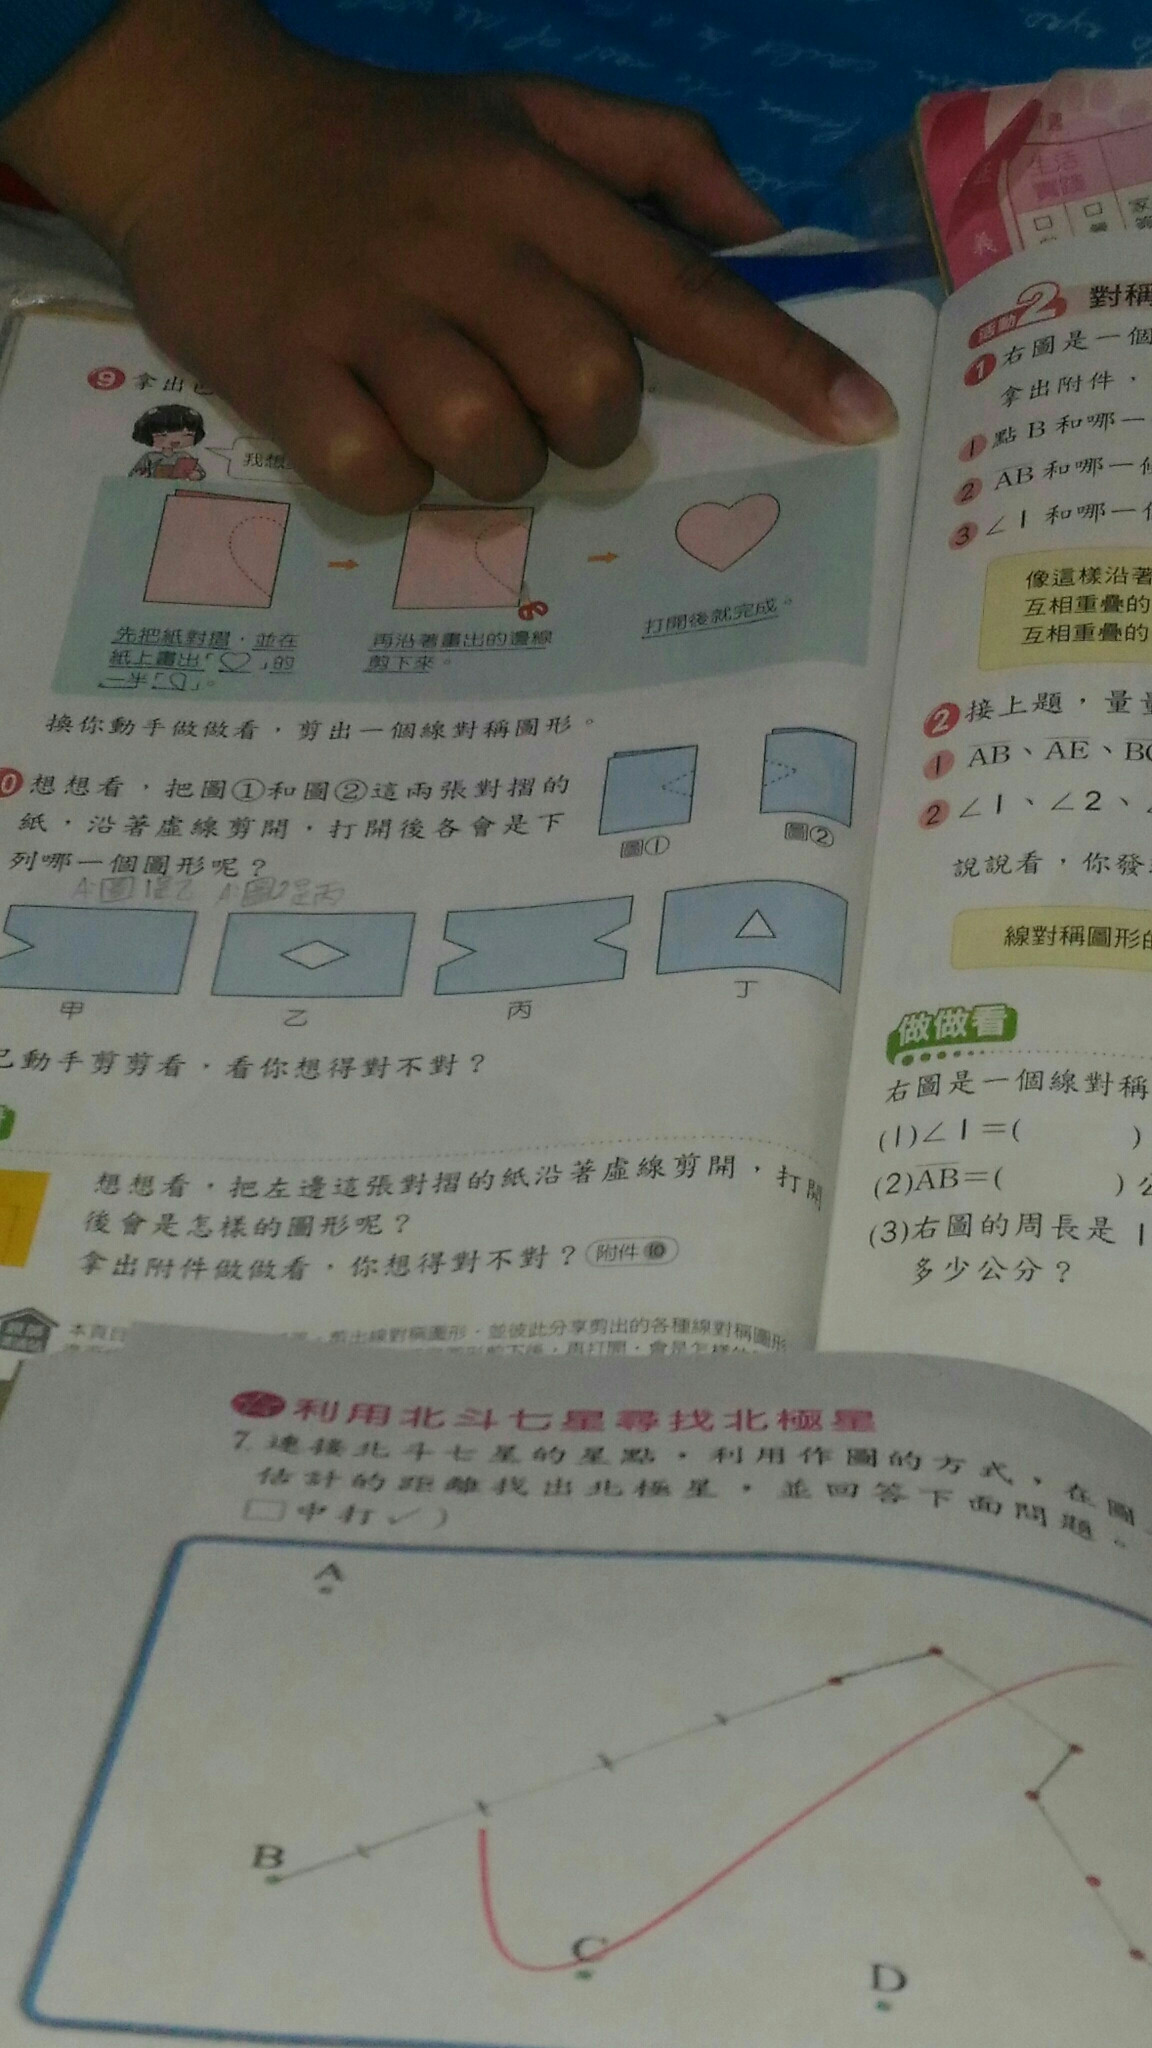 生活
實踐
義
9 拿出
我想
先把紙對摺，並在
紙上畫出「♡」的
再沿著畫出的邊線
剪下來。
打開後就完成。
換你動手做做看，剪出一個線對稱圖形。
想想看，把圖①和圖②這兩張對摺的
紙，沿著虛線剪開，打開後各會是下
列哪一個圖形呢？
圖①
圖②
A:圖1是乙 A:圖2是丙
甲
乙
丙
丁
己動手剪剪看，看你想得對不對？
想想看，把左邊這張對摺的紙沿著虛線剪開，打開
後會是怎樣的圖形呢？
拿出附件做做看，你想得對不對？ 附件 10
剪出線對稱圖形，並彼此分享剪出的各種線對稱圖形
活動 2 對稱
1 右圖是一個
拿出附件，
1 點B和哪一
2 AB和哪一條
3 ∠1和哪一
像這樣沿著
互相重疊的
互相重疊的
2 接上題，量
1 AB、AE、BC
2 ∠1、∠2、∠
說說看，你發
線對稱圖形的
做做看
右圖是一個線對稱
(1)∠1=( )
(2)AB=( )公
(3)右圖的周長是1
多少公分？
利用北斗七星尋找北極星
7. 連接北斗七星的星點，利用作圖的方式，在圖
估計的距離找出北極星，並回答下面問題。
□中打✓)
A
B
C
D